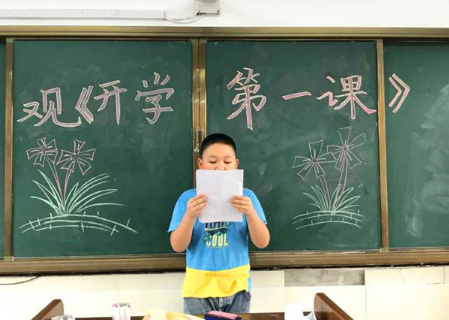 观《开学第一课》
COOL